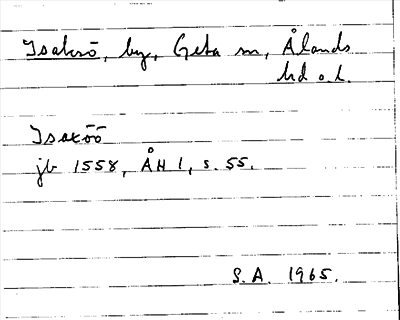 Isaksō, by, Geta sn, Ålands
hd o. l.
Isaxōō
jb 1558, ÅH 1, s. 55.
S.A. 1965.